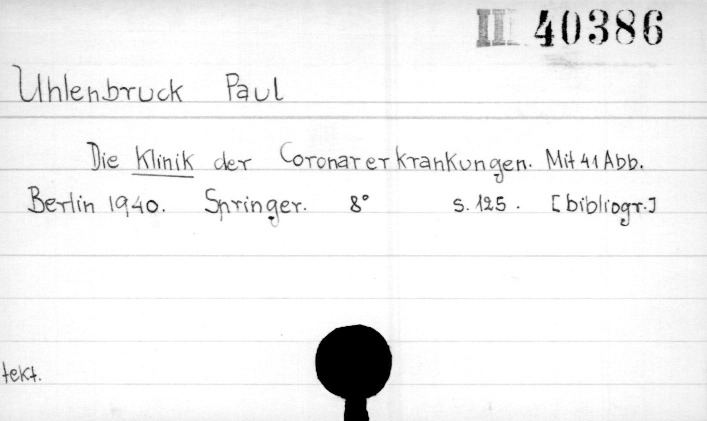 II 40386
Uhlenbruck Paul
Die Klinik der Coronarerkrankungen. Mit 41 Abb.
Berlin 1940. Springer. 8° s. 125. [bibliogr.]
tekt.